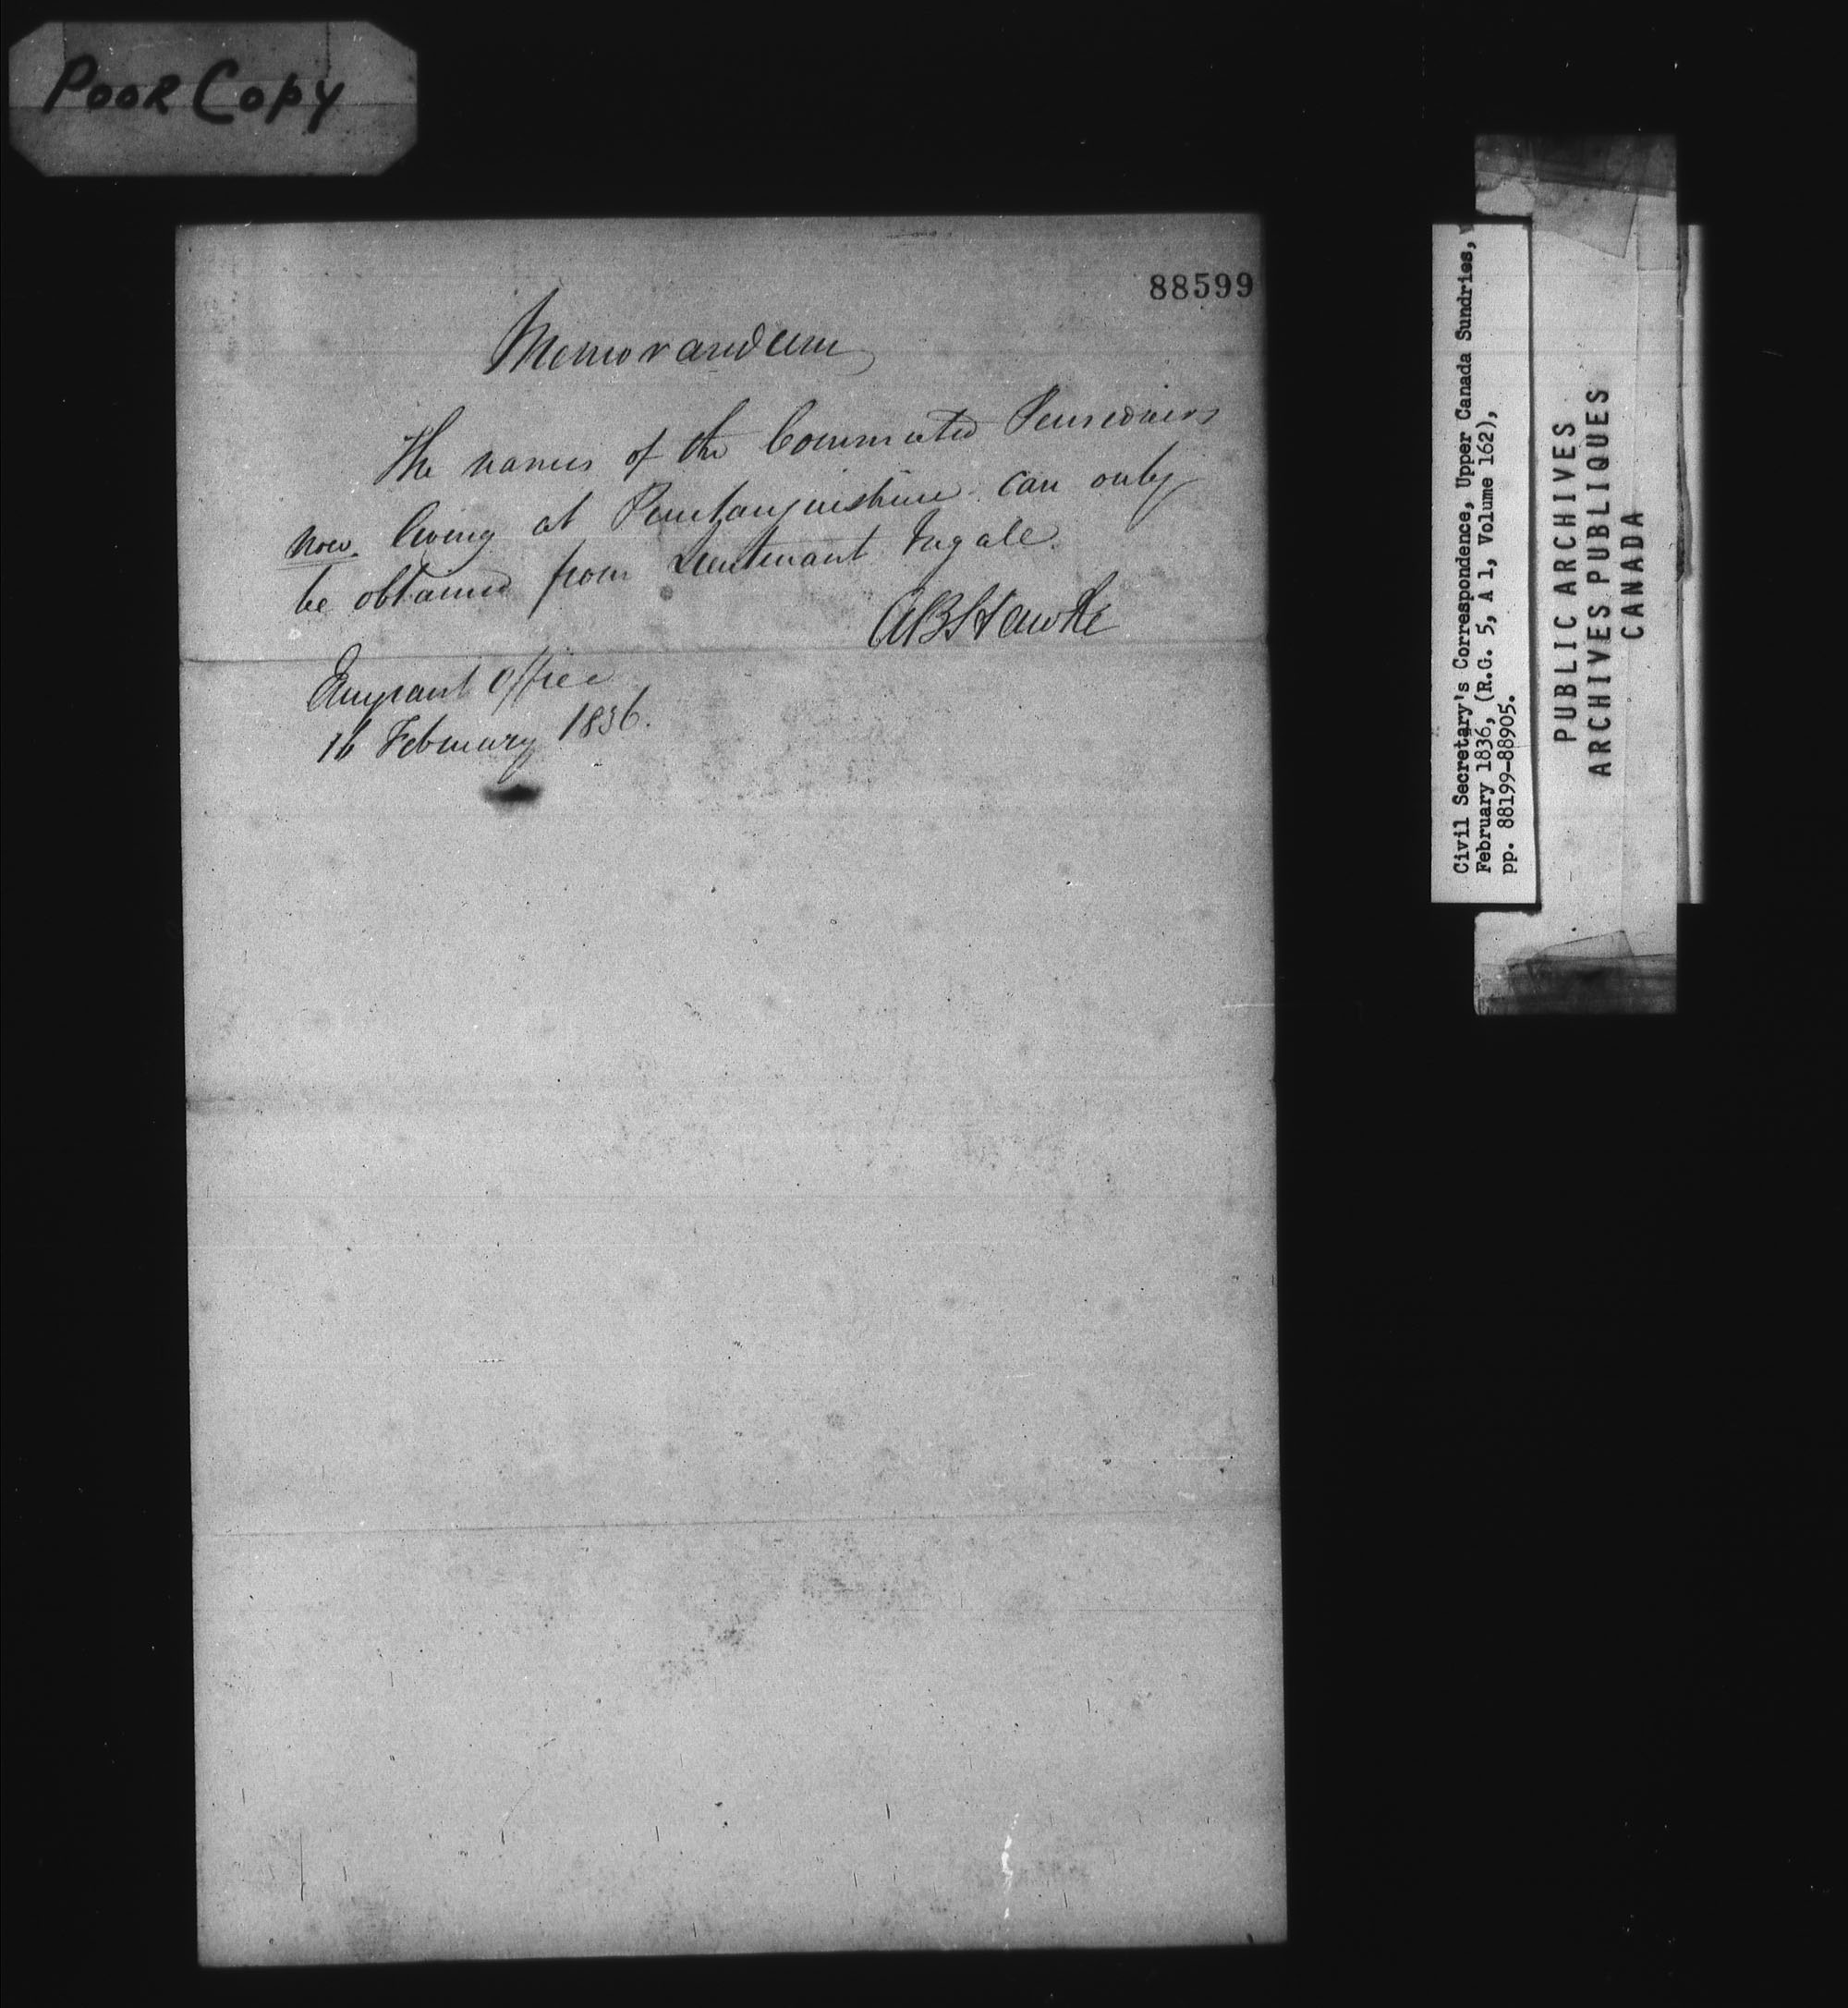 Poor Copy
88599
Memorandum
The names of the Commuted Pensioners
now living at Penetanguishine can only
be obtained from Lieutenant Ingall.
A B Hawke
Emigrant Office
16 February 1836.
Civil Secretary's Correspondence, Upper Canada Sundries,
February 1836, (R.G. 5, A 1, Volume 162),
pp. 88199-88905.
PUBLIC ARCHIVES
ARCHIVES PUBLIQUES
CANADA